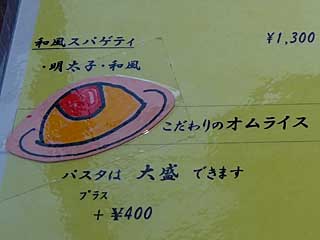 和風スパゲティ ¥1,300
・明太子・和風
こだわりのオムライス
パスタは 大盛 できます
プラス
+ ¥400